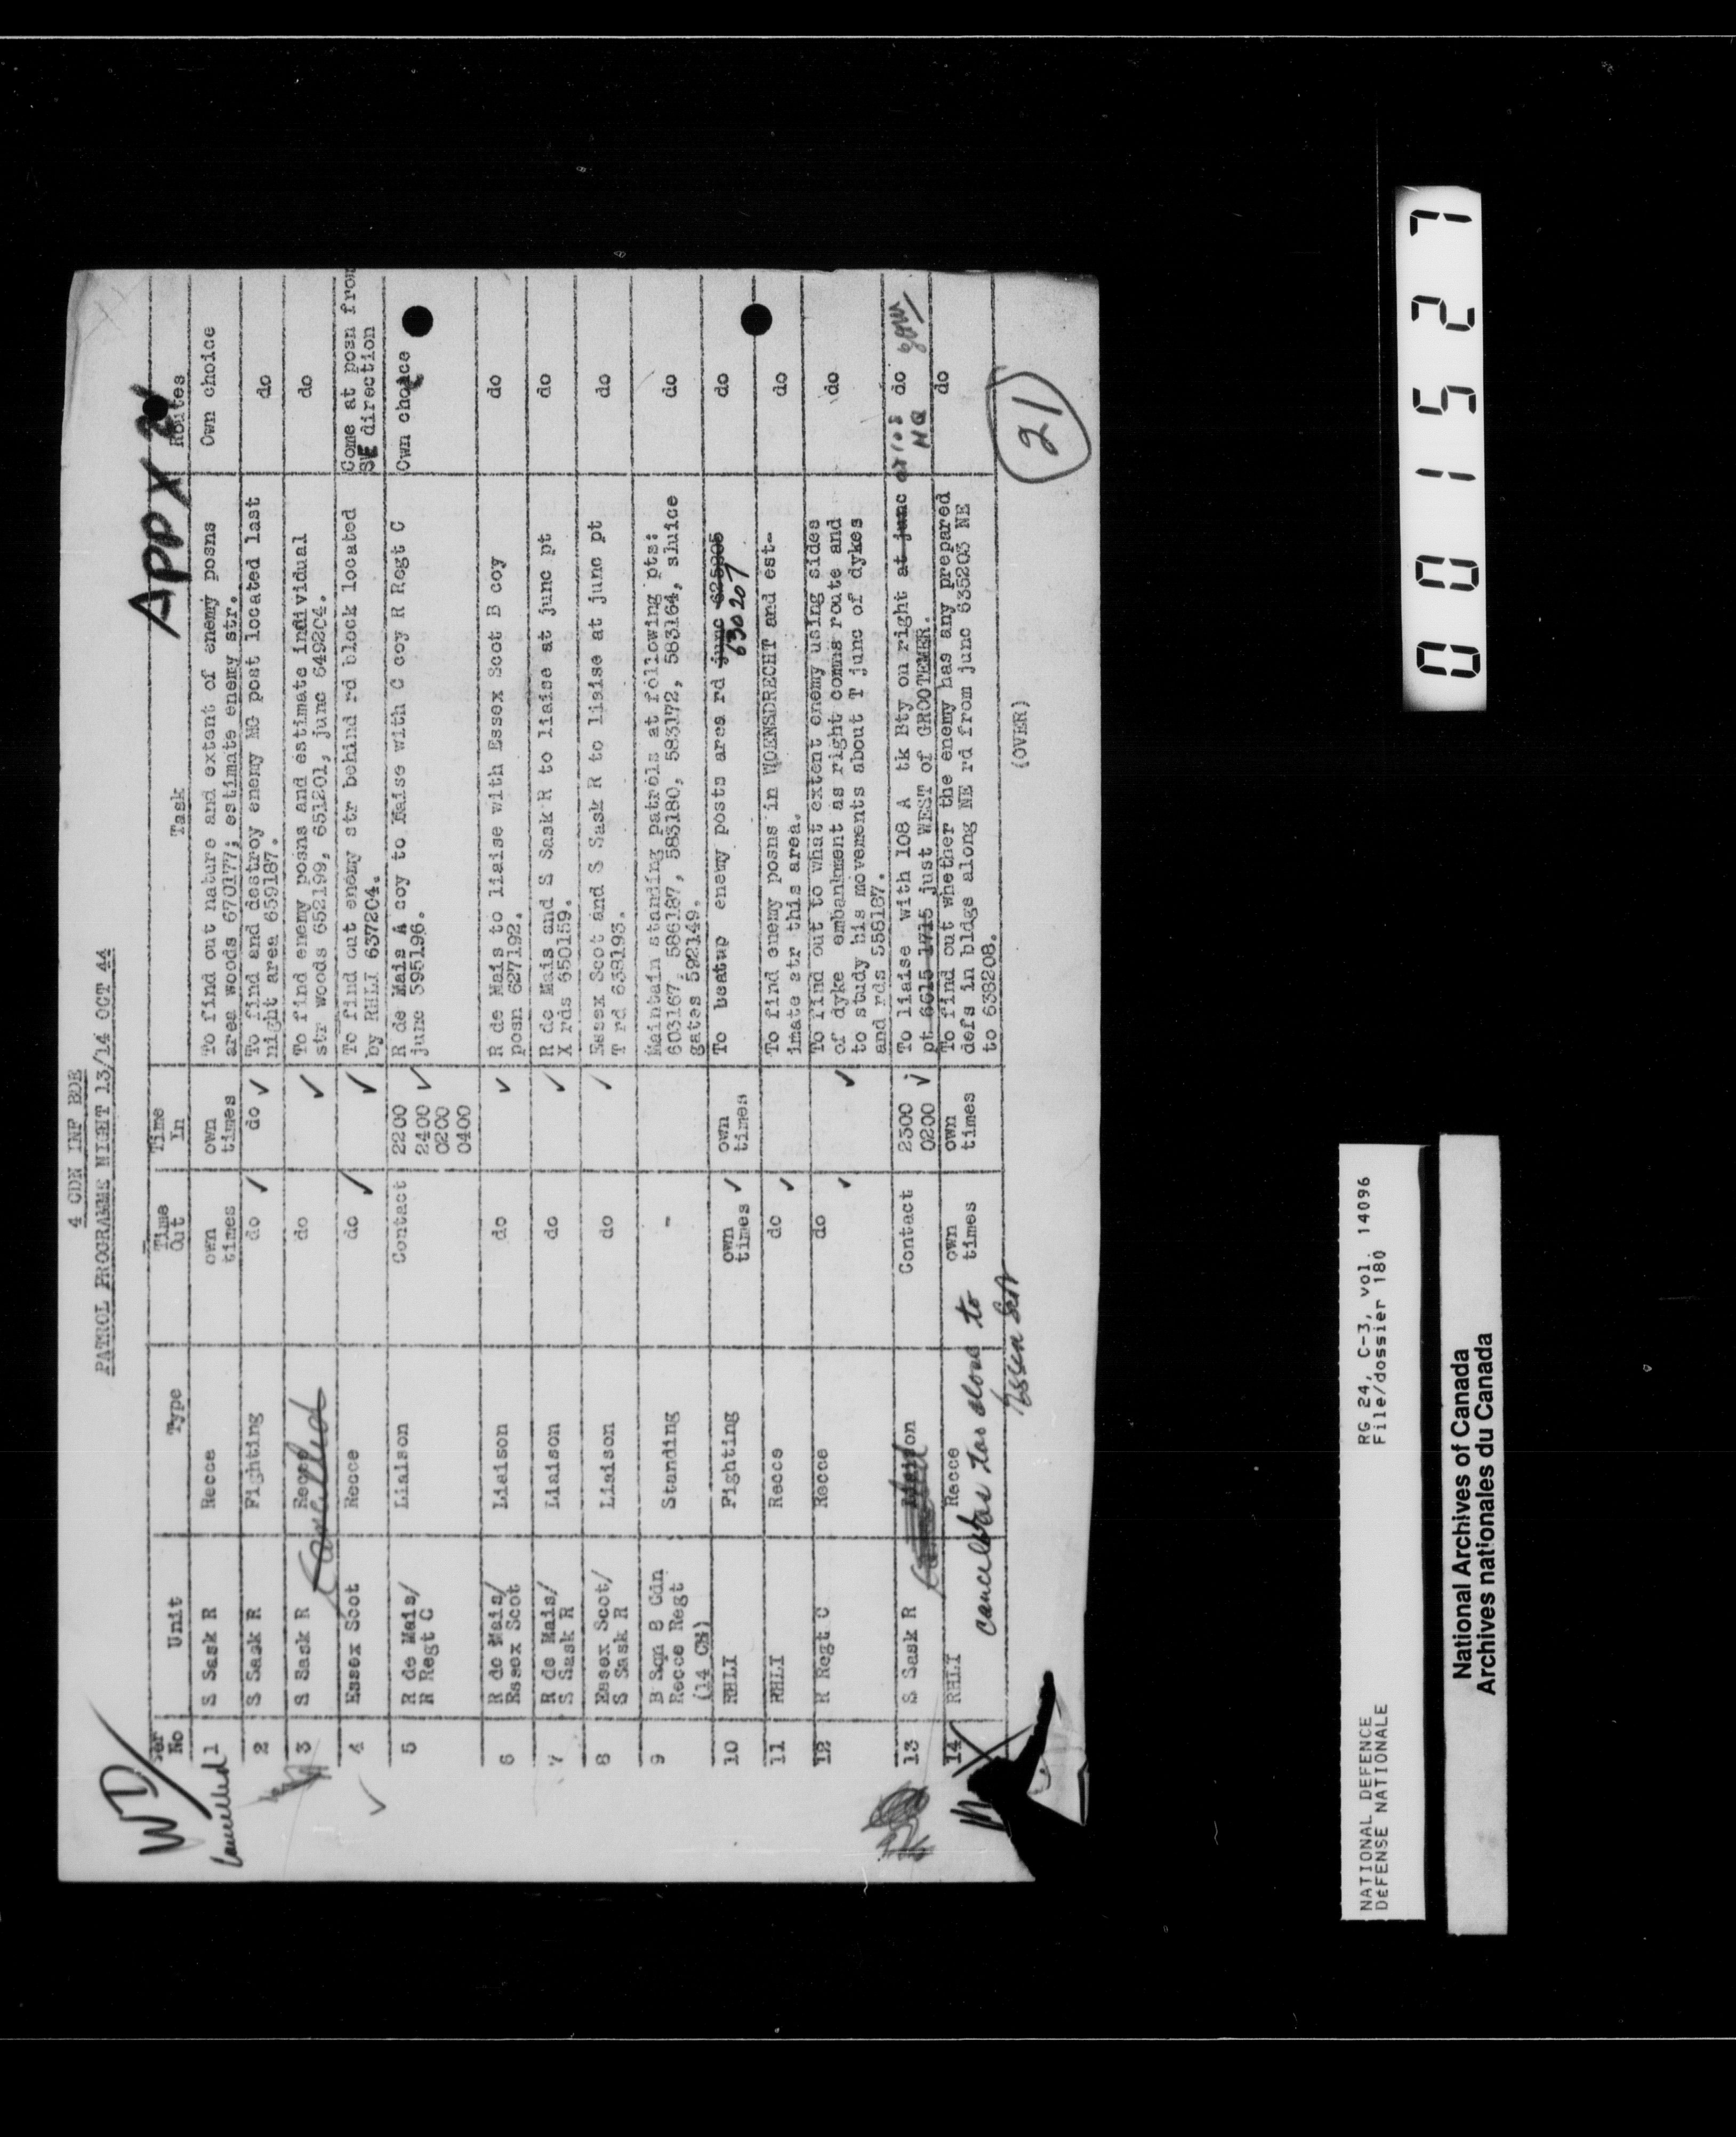 WD/
APPX
4 CDN INF BDE
PATROL PROGRAMME NIGHT 13/14 OCT 44
Ser No | Unit | Type | Time Out | Time In | Task | Routes
Cancelled 1 | S Sask R | Recce | own times | own times | To find out nature and extent of enemy posns area woods 670177; estimate enemy str. | Own choice
2 | S Sask R | Fighting | do | do | To find and destroy enemy MG post located last night area 659187. | do
3 | S Sask R | Recce Cancelled | do | To find enemy posns and estimate individual str woods 652199, 651201, junc 649204. | do
4 | Essex Scot | Recce | do | To find out enemy str behind rd block located by RHLI 637204. | Come at posn from direction
5 | R de Mais/ R Regt C | Liaison | Contact | 2200 2400 0200 0400 | R de Mais A coy to liaise with C coy R Regt C junc 595196. | Own choice
6 | R de Mais/ Essex Scot | Liaison | do | R de Mais to liaise with Essex Scot B coy posn 627192. | do
7 | R de Mais/ S Sask R | Liaison | do | R de Mais and S Sask R to liaise at junc pt X rds 650159. | do
8 | Essex Scot/ S Sask R | Liaison | do | Essex Scot and S Sask R to liaise at junc pt T rd 638193. | do
9 | B Sqn 8 Cdn Recce Regt (14 CH) | Standing | - | Maintain standing patrols at following pts: 603167, 586187, 583180, 583172, 583164, sluice gates 592149. | do
10 | RHLI | Fighting | own times | own times | To beatup enemy posts area rd junc 630207 | do
11 | RHLI | Recce | do | To find enemy posns in WOENSDRECHT and estimate str this area. | do
12 | R Regt C | Recce | do | To find out to what extent enemy using sides of dyke embankment as right comms route and to study his movements about T junc of dykes and rds 558187. | do
13 | S Sask R | Liaison | Contact | 2300 0200 | To liaise with 108 A tk Bty on right at junc pt 6615 1715 just WEST of GROOTEMEER. | do
HQ
14 | RHLI | Recce | own times | own times | To find out whether the enemy has any prepared defs in bldgs along NE rd from junc 635203 NE to 638208. | do
to
Essex Scot
(OVER)
21
0 0 1 5 2 7
NATIONAL DEFENCE
DÉFENSE NATIONALE
RG 24, C-3, vol. 14096
File/dossier 180
National Archives of Canada
Archives nationales du Canada